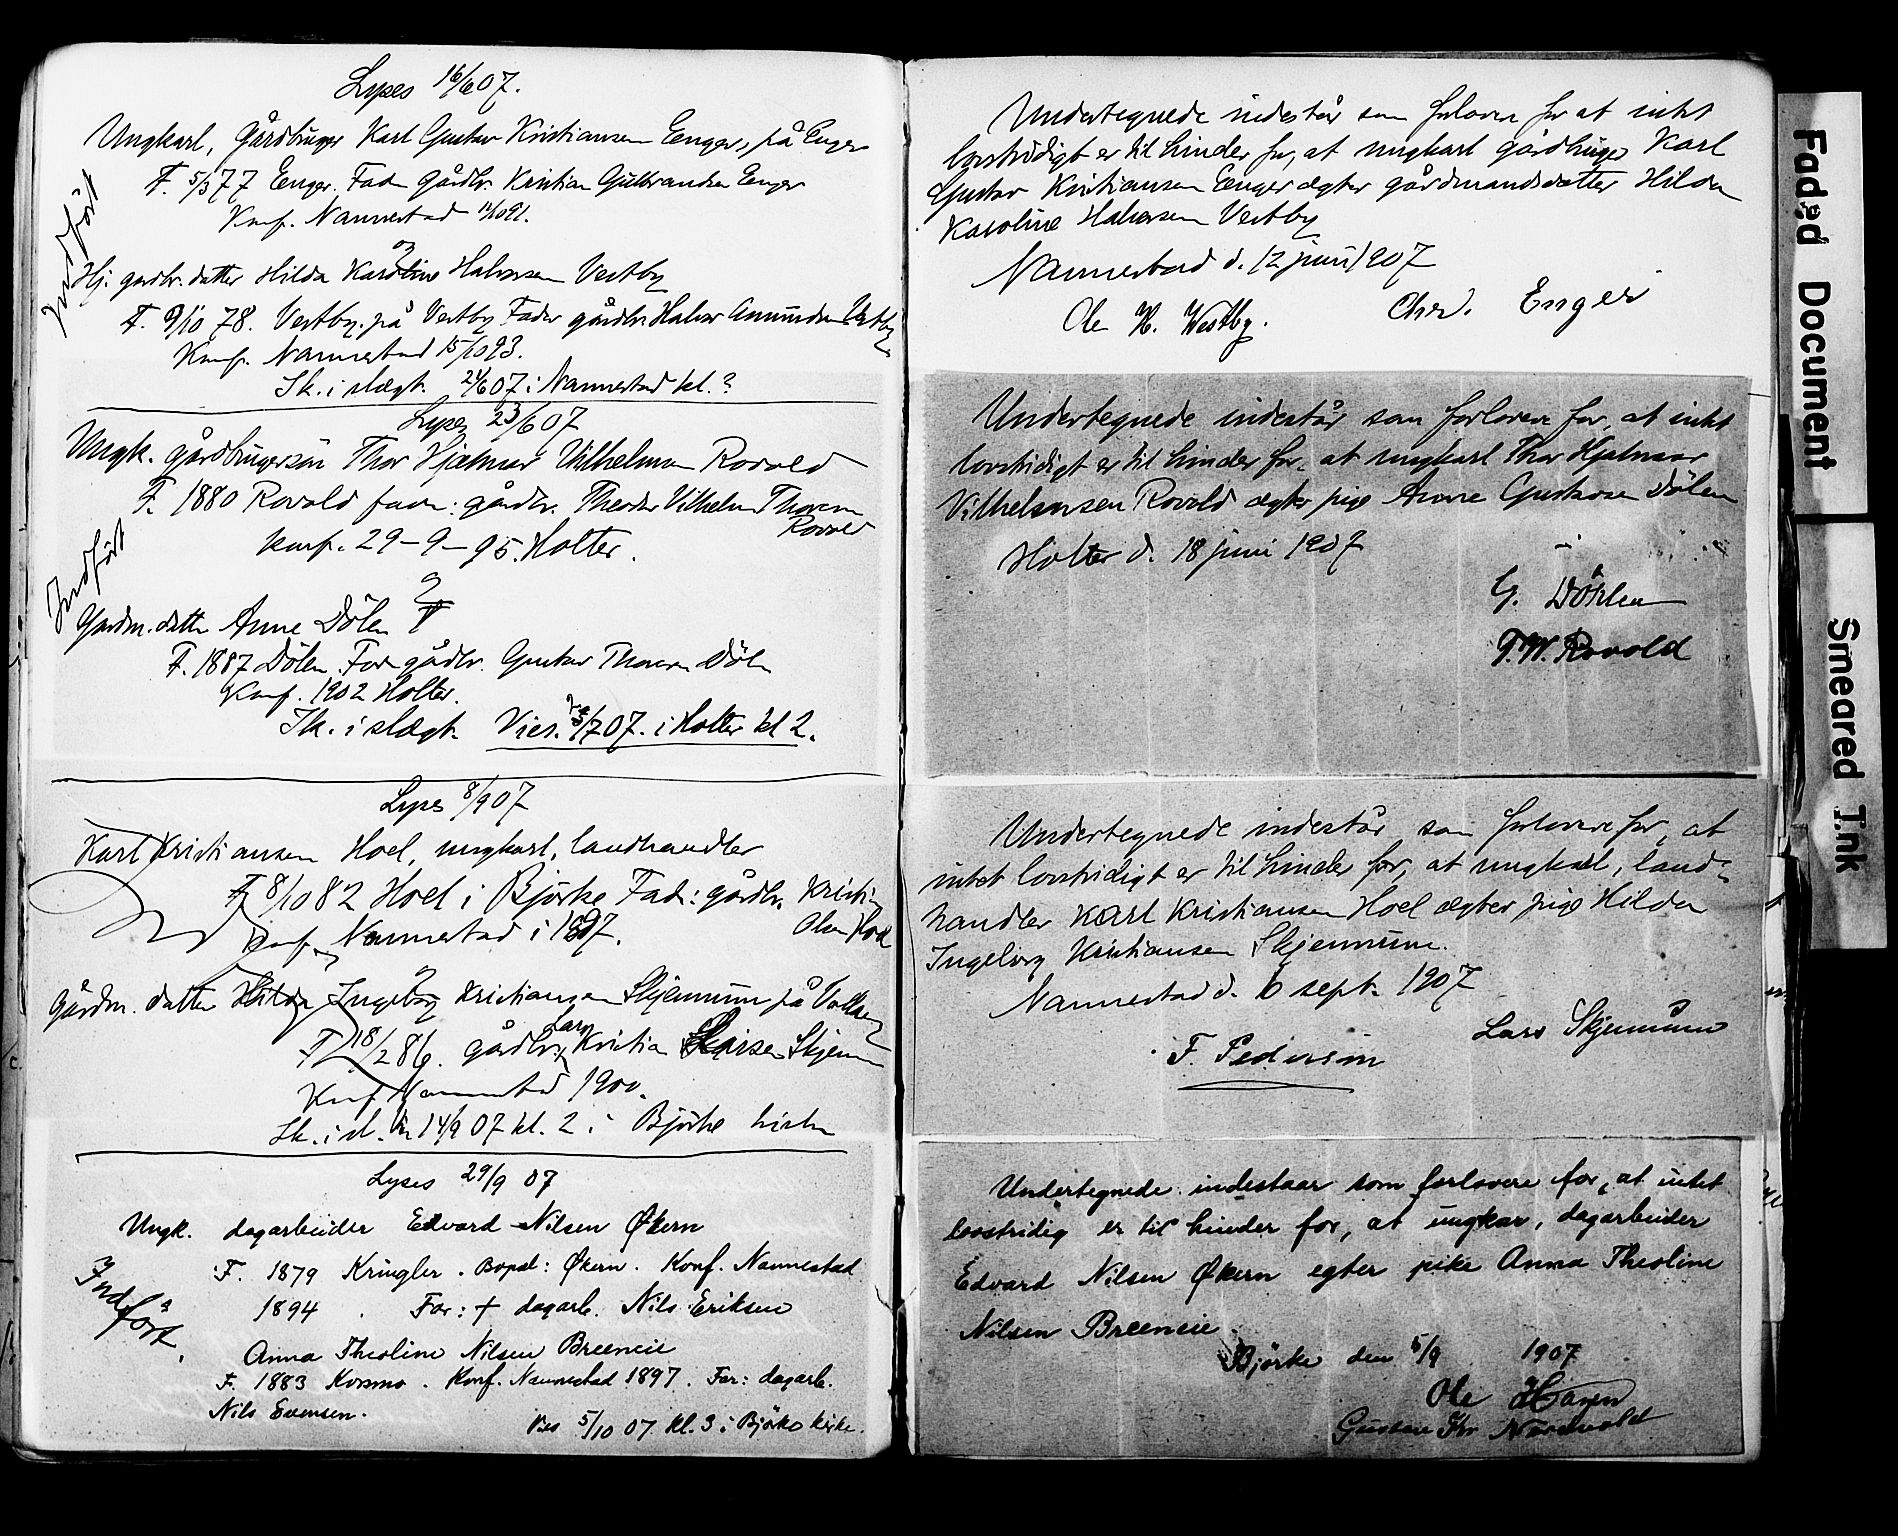 Lyses 16/6 07.
Ungkarl, Gårdbruger Karl Gustav Kristiansen Enger, på Enger
F. 5/3 77 Enger. Fader gårdbr. Kristian Gulbrandsen Enger
Konf. Nannestad 11/10 91.
og
Hj. gardbr. datter Hilda Karoline Halvorsen Vestby
F. 9/10 78. Vestby. på Vestby Fader gårdbr. Halvor Amundsen Vestby
Konf. Nannestad 15/10 93.
Sk. i slægt. 21/6 07 i Nannestad kl. ?
Indført
Lyses 23/6 07
Ungk. gårdbrugersøn Thor Hjalmar Vilhelmsen Rovold
F. 1880 Rovold fader: gårdbr. Theodor Vilhelm Thoresen
Rovold
konf. 29-9-95. Holter.
og
Gardm. datter Anne Dölen
F. 1887 Dölen. Far gårdbr. Gustav Thoresen Dölen
Konf. 1902 Holter.
Sk. i slægt. Vies. 5/7 07. i Holter kl 2.
Indført
Lyses 8/9 07
Karl Kristiansen Hoel, ungkarl, landhandler
F 8/10 82 Hoel i Bjørke Fader: gårdbr. Kristian
Olsen Hoel
Konf. Nannestad i 1897.
Gårdm. datter Hilda Ingeborg Kristiansen Skjennum på
F 18/2 86. gårdbr. Lars Kristian Skjennum
Konf Nannestad 1900.
Sk. i sl. 14/9 07 kl. 2 i Bjørke kirke
Lyses 29/9 07
Ungk. dagarbeider Edvard Nilsen Økern
F. 1879 Kringler. Bopæl: Økern. Konf. Nannestad
1894. Far: + dagarb. Nils Eriksen
Anna Theoline Nilsen Breeneie
F. 1883 Kosmo. Konf. Nannestad 1897. Far: dagarb.
Nils Evensen.
Vies 5/10 07 kl. 3 i Bjørke kirke.
Indført.
Undertegnede indestår som forlovere for at intet
lovstridigt er til hinder for, at ungkarl gårdbruger Karl
Gustav Kristiansen Enger ægter gårdmandsdatter Hilda
Karoline Halvorsen Vestby
Nannestad d. 12 juni 1907
Ole H. Westby. Chr. Enger
Undertegnede indestår som forlovere for, at intet
lovstridigt er til hinder for, at ungkarl Thor Hjalmar
Vilhelmsen Rovold ægter pige Anne Gustavsen Dölen
Holter d. 18 juni 1907
G. Döhlen
T. W. Rovold
Undertegnede indestår som forlovere for, at
intet lovstridigt er til hinder for, at ungkarl, land-
handler Karl Kristiansen Hoel ægter pige Hilda
Ingeborg Kristiansen Skjennum.
Nannestad d. 6 sept. 1907
Lars Skjennum
F. Pedersen
Undertegnede indestaar som forlovere for, at intet
lovstridig er til hinder for, at ungkar, dagarbeider
Edvard Nilsen Økern egter pike Anna Theoline
Nilsen Breeneie.
Bjørke den 5/9 1907
Ole Hagen
Gustav Kr Nordvold
Faded Document
Smeared Ink